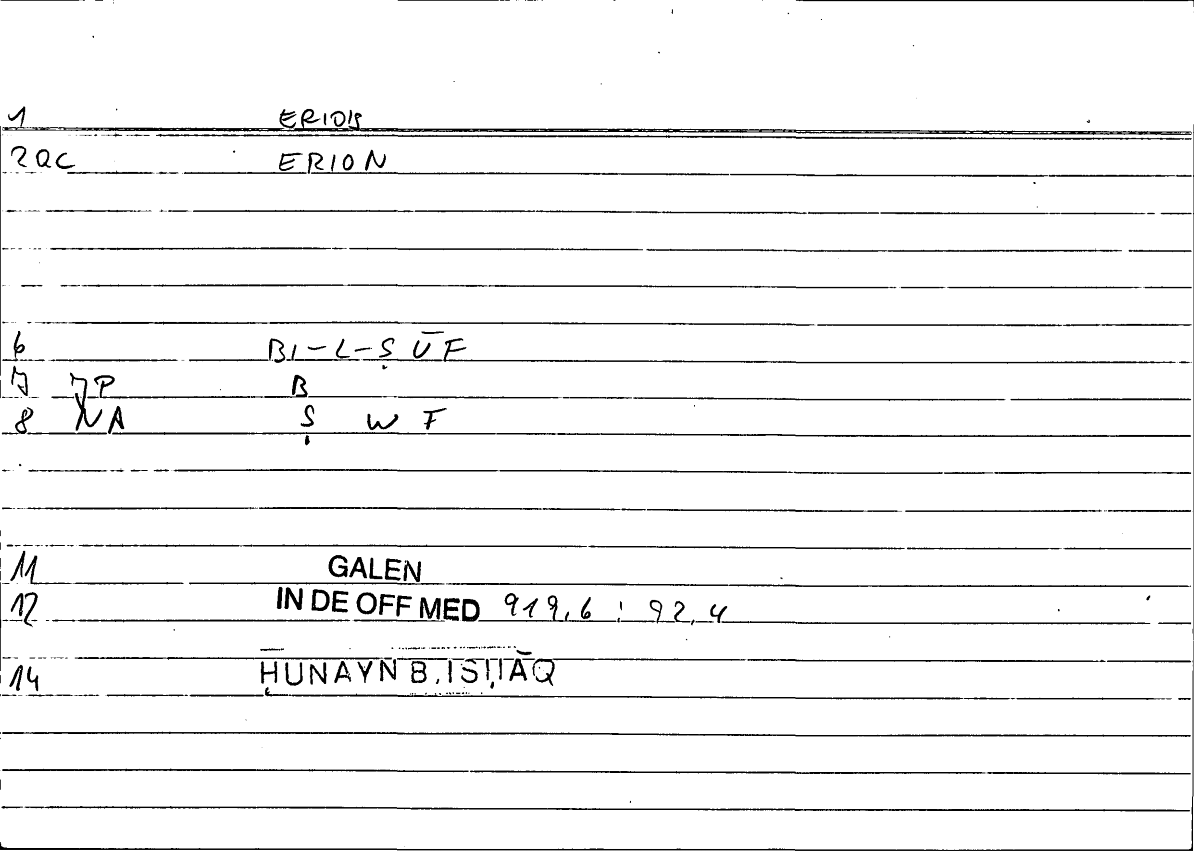 1 ERIOIS
2 QC ERION
6 BI-L-ṢŪF
7 JP B
8 NA Ṣ W F
11 GALEN
12 IN DE OFF MED 919,6 : 92,4
14 ḤUNAYN B. ISḤĀQ